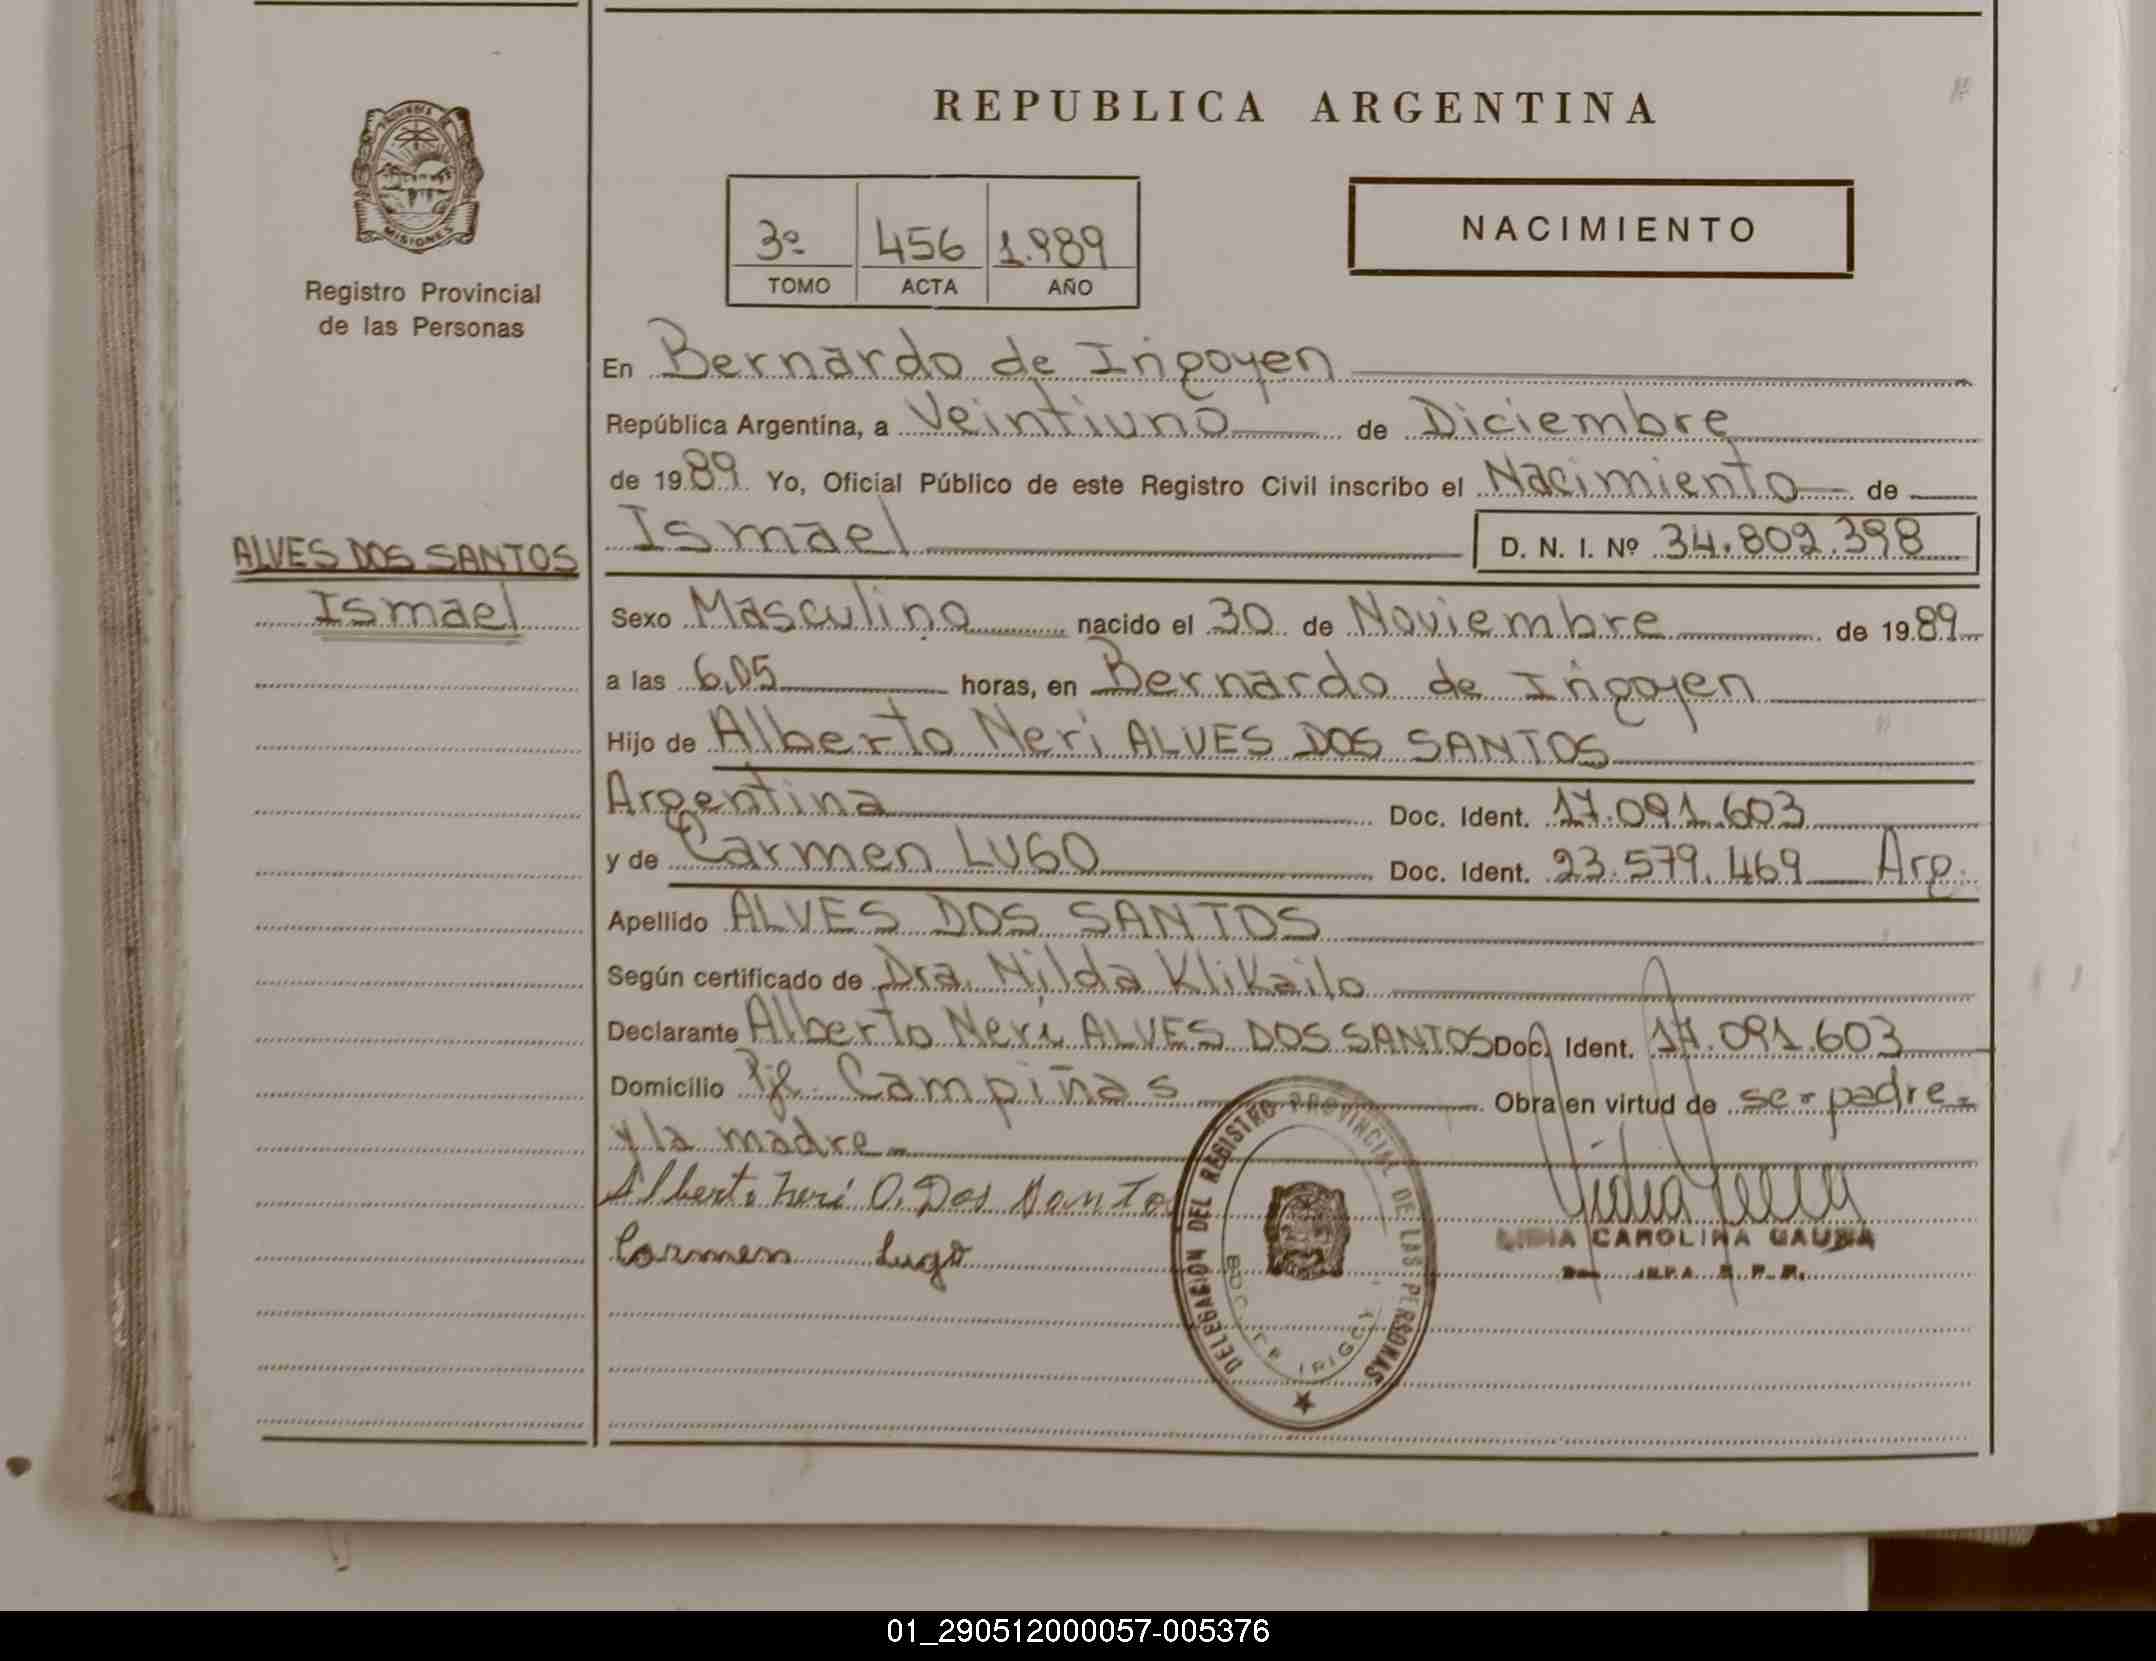 REPUBLICA ARGENTINA
MISIONES
Registro Provincial
de las Personas
NACIMIENTO
3º 456 1.989
TOMO ACTA AÑO
En Bernardo de Irigoyen
República Argentina, a Veintiuno de Diciembre
de 1989 Yo, Oficial Público de este Registro Civil inscribo el Nacimiento de
Ismael D. N. I. Nº 34.802.398
ALVES DOS SANTOS
Ismael
Sexo Masculino nacido el 30 de Noviembre de 1989
a las 6,05 horas, en Bernardo de Irigoyen
Hijo de Alberto Neri ALVES DOS SANTOS
Argentina Doc. Ident. 17.091.603
y de Carmen LUGO Doc. Ident. 23.579.469 Arg.
Apellido ALVES DOS SANTOS
Según certificado de Dra. Nilda Klikailo
Declarante Alberto Neri ALVES DOS SANTOS Doc. Ident. 17.091.603
Domicilio Pje. Campiñas Obra en virtud de ser padre
y la madre
Alberto Neri A. Dos Santos
Carmen Lugo
LIDIA CAROLINA
DELEGACION DEL REGISTRO PROVINCIAL DE LAS PERSONAS
01_290512000057-005376